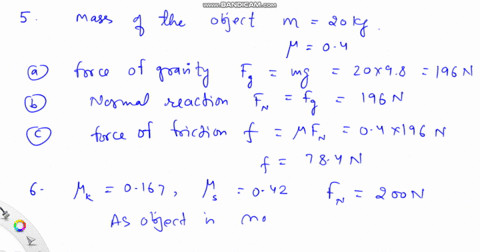 WWW.BANDICAM.COM
5. mass of the object m = 20 kg.
μ = 0.4
(a) force of gravity Fg = mg = 20×9.8 = 196 N
(b) Normal reaction FN = fg = 196 N
(c) force of friction f = μFN = 0.4×196 N
f = 78.4 N
6. μk = 0.167, μs = 0.42 fN = 200N
As object in mo